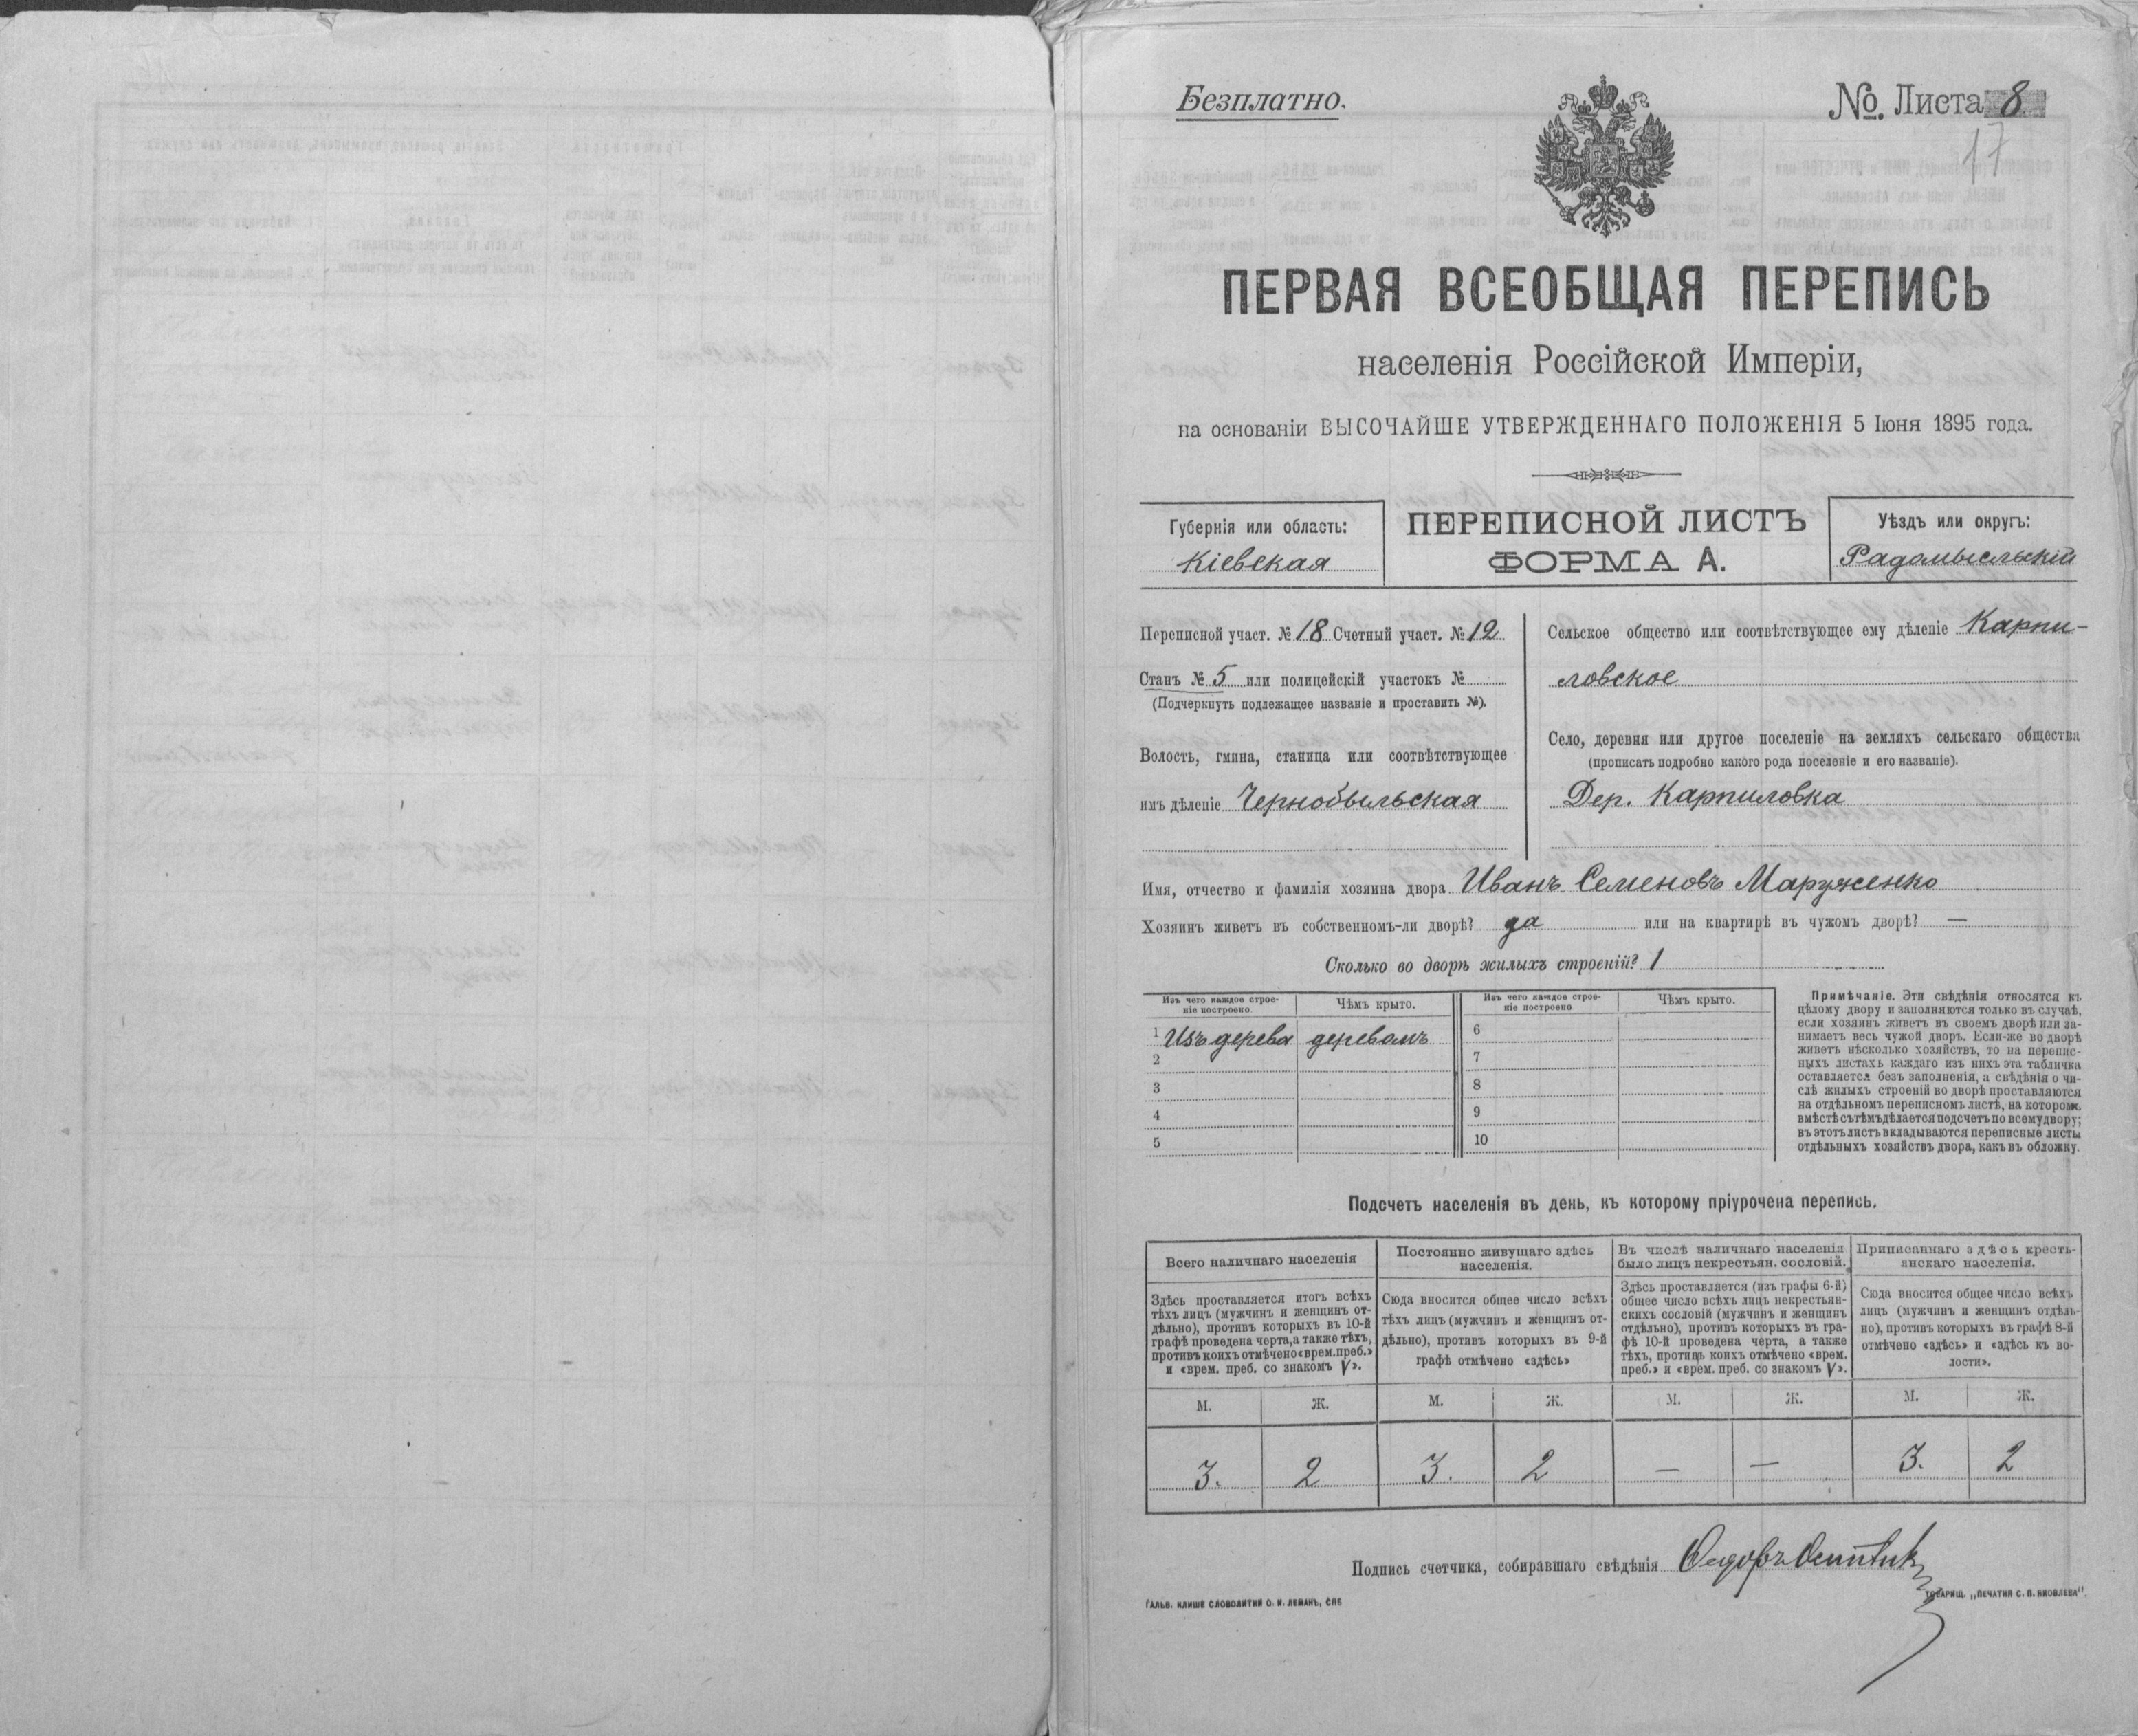 Безплатно.
№. Листа 8
17
ПЕРВАЯ ВСЕОБЩАЯ ПЕРЕПИСЬ
населенія Россійской Имперіи,
на основаніи ВЫСОЧАЙШЕ УТВЕРЖДЕННАГО ПОЛОЖЕНІЯ 5 Іюня 1895 года.
Губернія или область:
Кіевская
ПЕРЕПИСНОЙ ЛИСТЪ
ФОРМА А.
Уѣздъ или округъ:
Радомысльскій
Переписной участ. № 18 Счетный участ. № 12
Станъ № 5 или полицейскій участокъ №
(Подчеркнуть подлежащее названіе и проставить №).
Волость, гмина, станица или соотвѣтствующее
имъ дѣленіе Чернобыльская
Сельское общество или соотвѣтствующее ему дѣленіе Карпи-
ловское
Село, деревня или другое поселеніе на земляхъ сельскаго общества
(прописать подробно какого рода поселеніе и его названіе).
Дер. Карпиловка
Имя, отчество и фамилія хозяина двора Иванъ Семеновъ Маруженко
Хозяинъ живетъ въ собственномъ-ли дворѣ? да или на квартирѣ въ чужомъ дворѣ? —
Сколько во дворѣ жилыхъ строеній? 1
Изъ чего каждое строе-
ніе построено.
Чѣмъ крыто.
Изъ чего каждое строе-
ніе построено
Чѣмъ крыто.
1 Изъ дерева деревомъ
2
3
4
5
6
7
8
9
10
Примѣчаніе. Эти свѣдѣнія относятся къ
цѣлому двору и заполняются только въ случаѣ,
если хозяинъ живетъ въ своемъ дворѣ или за-
нимаетъ весь чужой дворъ. Если-же во дворѣ
живетъ нѣсколько хозяйствъ, то на перепис-
ныхъ листахъ каждаго изъ нихъ эта табличка
оставляется безъ заполненія, а свѣдѣнія о чи-
слѣ жилыхъ строеній во дворѣ проставляются
на отдѣльномъ переписномъ листѣ, на которомъ
вмѣстѣ съ тѣмъ дѣлается подсчетъ по всему двору;
въ этотъ листъ вкладываются переписные листы
отдѣльныхъ хозяйствъ двора, какъ въ обложку.
Подсчетъ населенія въ день, къ которому пріурочена перепись.
Всего наличнаго населенія
Здѣсь проставляется итогъ всѣхъ
тѣхъ лицъ (мужчинъ и женщинъ от-
дѣльно), противъ которыхъ въ 10-й
графѣ проведена черта, а также тѣхъ,
противъ коихъ отмѣчено «врем. преб.»
и «врем. преб. со знакомъ V».
Постоянно живущаго здѣсь
населенія.
Сюда вносится общее число всѣхъ
тѣхъ лицъ (мужчинъ и женщинъ от-
дѣльно), противъ которыхъ въ 9-й
графѣ отмѣчено «здѣсь»
Въ числѣ наличнаго населенія
было лицъ некрестьян. сословій.
Здѣсь проставляется (изъ графы 6-й)
общее число всѣхъ лицъ некрестьян-
скихъ сословій (мужчинъ и женщинъ
отдѣльно), противъ которыхъ въ гра-
фѣ 10-й проведена черта, а также
тѣхъ, противъ коихъ отмѣчено «врем.
преб.» и «врем. преб. со знакомъ V».
Приписаннаго здѣсь кресть-
янскаго населенія.
Сюда вносится общее число всѣхъ
лицъ (мужчинъ и женщинъ отдѣль-
но), противъ которыхъ въ графѣ 8-й
отмѣчено «здѣсь» и «здѣсь къ во-
лости».
М. Ж. М. Ж. М. Ж. М. Ж.
3. 2 3. 2 — — 3. 2
Подпись счетчика, собиравшаго свѣдѣнія
ГАЛЬВ. КЛИШЕ СЛОВОЛИТНИ О. И. ЛЕМАНЪ, СПБ
ТОВАРИЩ. „ПЕЧАТНЯ С. П. ЯКОВЛЕВА".